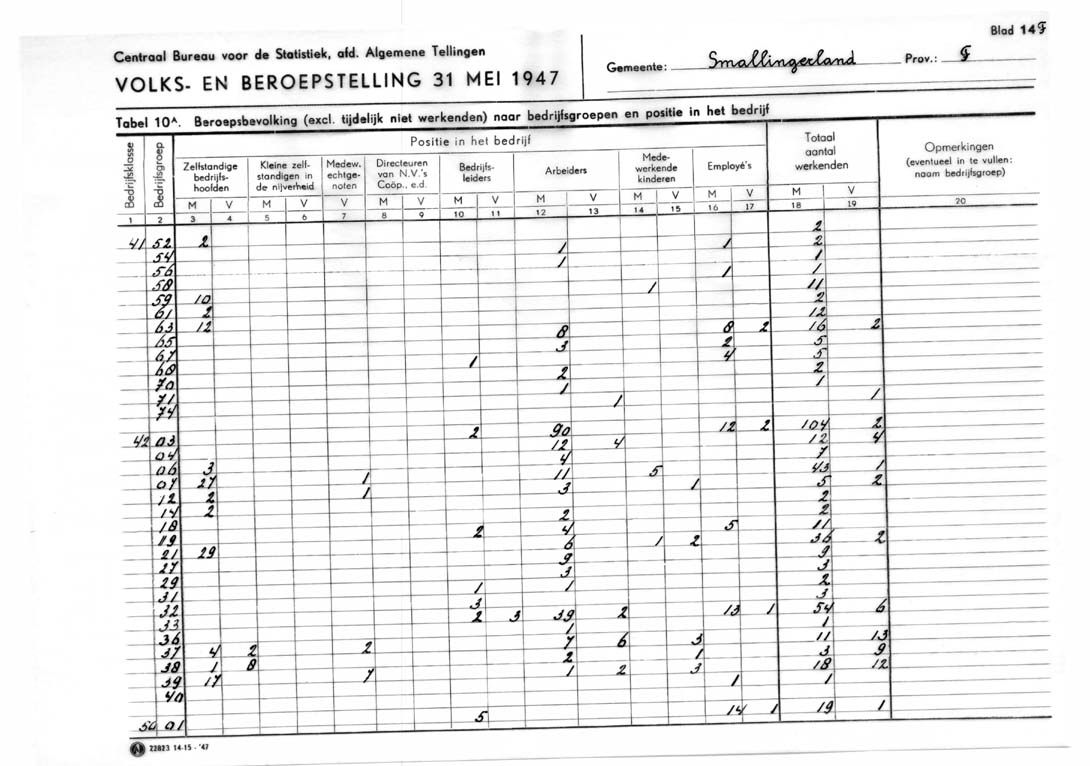 Blad 14 F
Centraal Bureau voor de Statistiek, afd. Algemene Tellingen
VOLKS- EN BEROEPSTELLING 31 MEI 1947
Gemeente: Smallingerland Prov.: F
Tabel 10ᴬ. Beroepsbevolking (excl. tijdelijk niet werkenden) naar bedrijfsgroepen en positie in het bedrijf
Bedrijfsklasse
Bedrijfsgroep
Positie in het bedrijf
Zelfstandige bedrijfs-hoofden
Kleine zelf-standigen in de nijverheid
Medew. echtge-noten
Directeuren van N.V.'s Coöp., e.d.
Bedrijfs-leiders
Arbeiders
Mede-werkende kinderen
Employé's
Totaal aantal werkenden
Opmerkingen (eventueel in te vullen: naam bedrijfsgroep)
M V M V V M V M V M V M V M V M V
1 2 3 4 5 6 7 8 9 10 11 12 13 14 15 16 17 18 19 20
41 52 2 2
54 1 1 2
56 1 1
58 1 1
59 10 1 11
61 2 2
63 12 12
65 8 8 2 16 2
67 3 2 5
68 1 4 5
70 2 2
71 1 1
74 1 1
42 03 2 90 12 2 104 2
04 12 4 12 4
06 3 4 7
07 27 1 11 5 43 1
12 2 1 3 1 5 2
14 2 2
18 2 2
19 2 4 5 11
21 29 6 1 2 36 2
27 9 9
29 3 3
31 1 1 2
32 3 3
33 2 3 39 2 13 1 54 6
36 1 1
37 4 2 2 7 6 3 11 13
38 1 8 2 1 3 9
39 17 7 1 2 3 18 12
40 1 1
50 01 5 14 1 19 1
22823 14-15 - '47